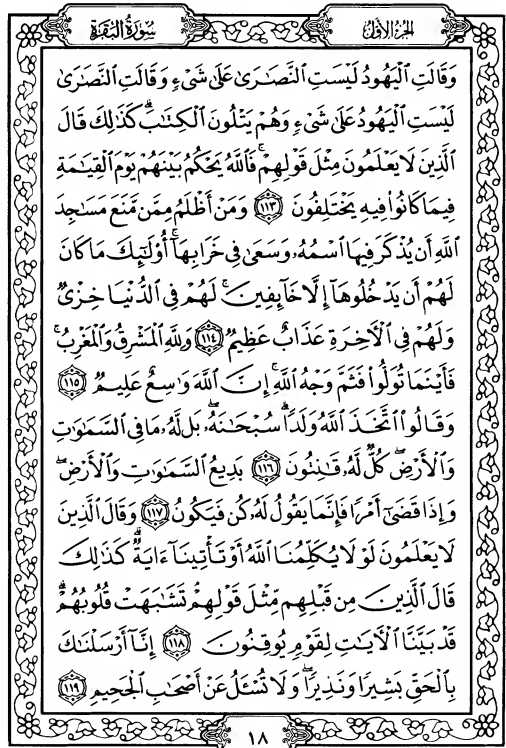 سُورَةُ البَقَرَةِ
الجُزءُ الأوَّلُ
وَقَالَتِ ٱلْيَهُودُ لَيْسَتِ ٱلنَّصَـٰرَىٰ عَلَىٰ شَىْءٍ وَقَالَتِ ٱلنَّصَـٰرَىٰ
لَيْسَتِ ٱلْيَهُودُ عَلَىٰ شَىْءٍ وَهُمْ يَتْلُونَ ٱلْكِتَـٰبَۗ كَذَٰلِكَ قَالَ
ٱلَّذِينَ لَا يَعْلَمُونَ مِثْلَ قَوْلِهِمْۚ فَٱللَّهُ يَحْكُمُ بَيْنَهُمْ يَوْمَ ٱلْقِيَـٰمَةِ
فِيمَا كَانُوا۟ فِيهِ يَخْتَلِفُونَ ١١٣ وَمَنْ أَظْلَمُ مِمَّن مَّنَعَ مَسَـٰجِدَ
ٱللَّهِ أَن يُذْكَرَ فِيهَا ٱسْمُهُۥ وَسَعَىٰ فِى خَرَابِهَآۚ أُو۟لَـٰٓئِكَ مَا كَانَ
لَهُمْ أَن يَدْخُلُوهَآ إِلَّا خَآئِفِينَۚ لَهُمْ فِى ٱلدُّنْيَا خِزْىٌ
وَلَهُمْ فِى ٱلْـَٔاخِرَةِ عَذَابٌ عَظِيمٌ ١١٤ وَلِلَّهِ ٱلْمَشْرِقُ وَٱلْمَغْرِبُۚ
فَأَيْنَمَا تُوَلُّوا۟ فَثَمَّ وَجْهُ ٱللَّهِۚ إِنَّ ٱللَّهَ وَٰسِعٌ عَلِيمٌ ١١٥
وَقَالُوا۟ ٱتَّخَذَ ٱللَّهُ وَلَدًاۗ سُبْحَـٰنَهُۥۖ بَل لَّهُۥ مَا فِى ٱلسَّمَـٰوَٰتِ
وَٱلْأَرْضِۖ كُلٌّ لَّهُۥ قَـٰنِتُونَ ١١٦ بَدِيعُ ٱلسَّمَـٰوَٰتِ وَٱلْأَرْضِۖ
وَإِذَا قَضَىٰٓ أَمْرًا فَإِنَّمَا يَقُولُ لَهُۥ كُن فَيَكُونُ ١١٧ وَقَالَ ٱلَّذِينَ
لَا يَعْلَمُونَ لَوْلَا يُكَلِّمُنَا ٱللَّهُ أَوْ تَأْتِينَآ ءَايَةٌۗ كَذَٰلِكَ
قَالَ ٱلَّذِينَ مِن قَبْلِهِم مِّثْلَ قَوْلِهِمْۘ تَشَـٰبَهَتْ قُلُوبُهُمْۗ
قَدْ بَيَّنَّا ٱلْـَٔايَـٰتِ لِقَوْمٍ يُوقِنُونَ ١١٨ إِنَّآ أَرْسَلْنَـٰكَ
بِٱلْحَقِّ بَشِيرًا وَنَذِيرًاۖ وَلَا تُسْـَٔلُ عَنْ أَصْحَـٰبِ ٱلْجَحِيمِ ١١٩
١٨